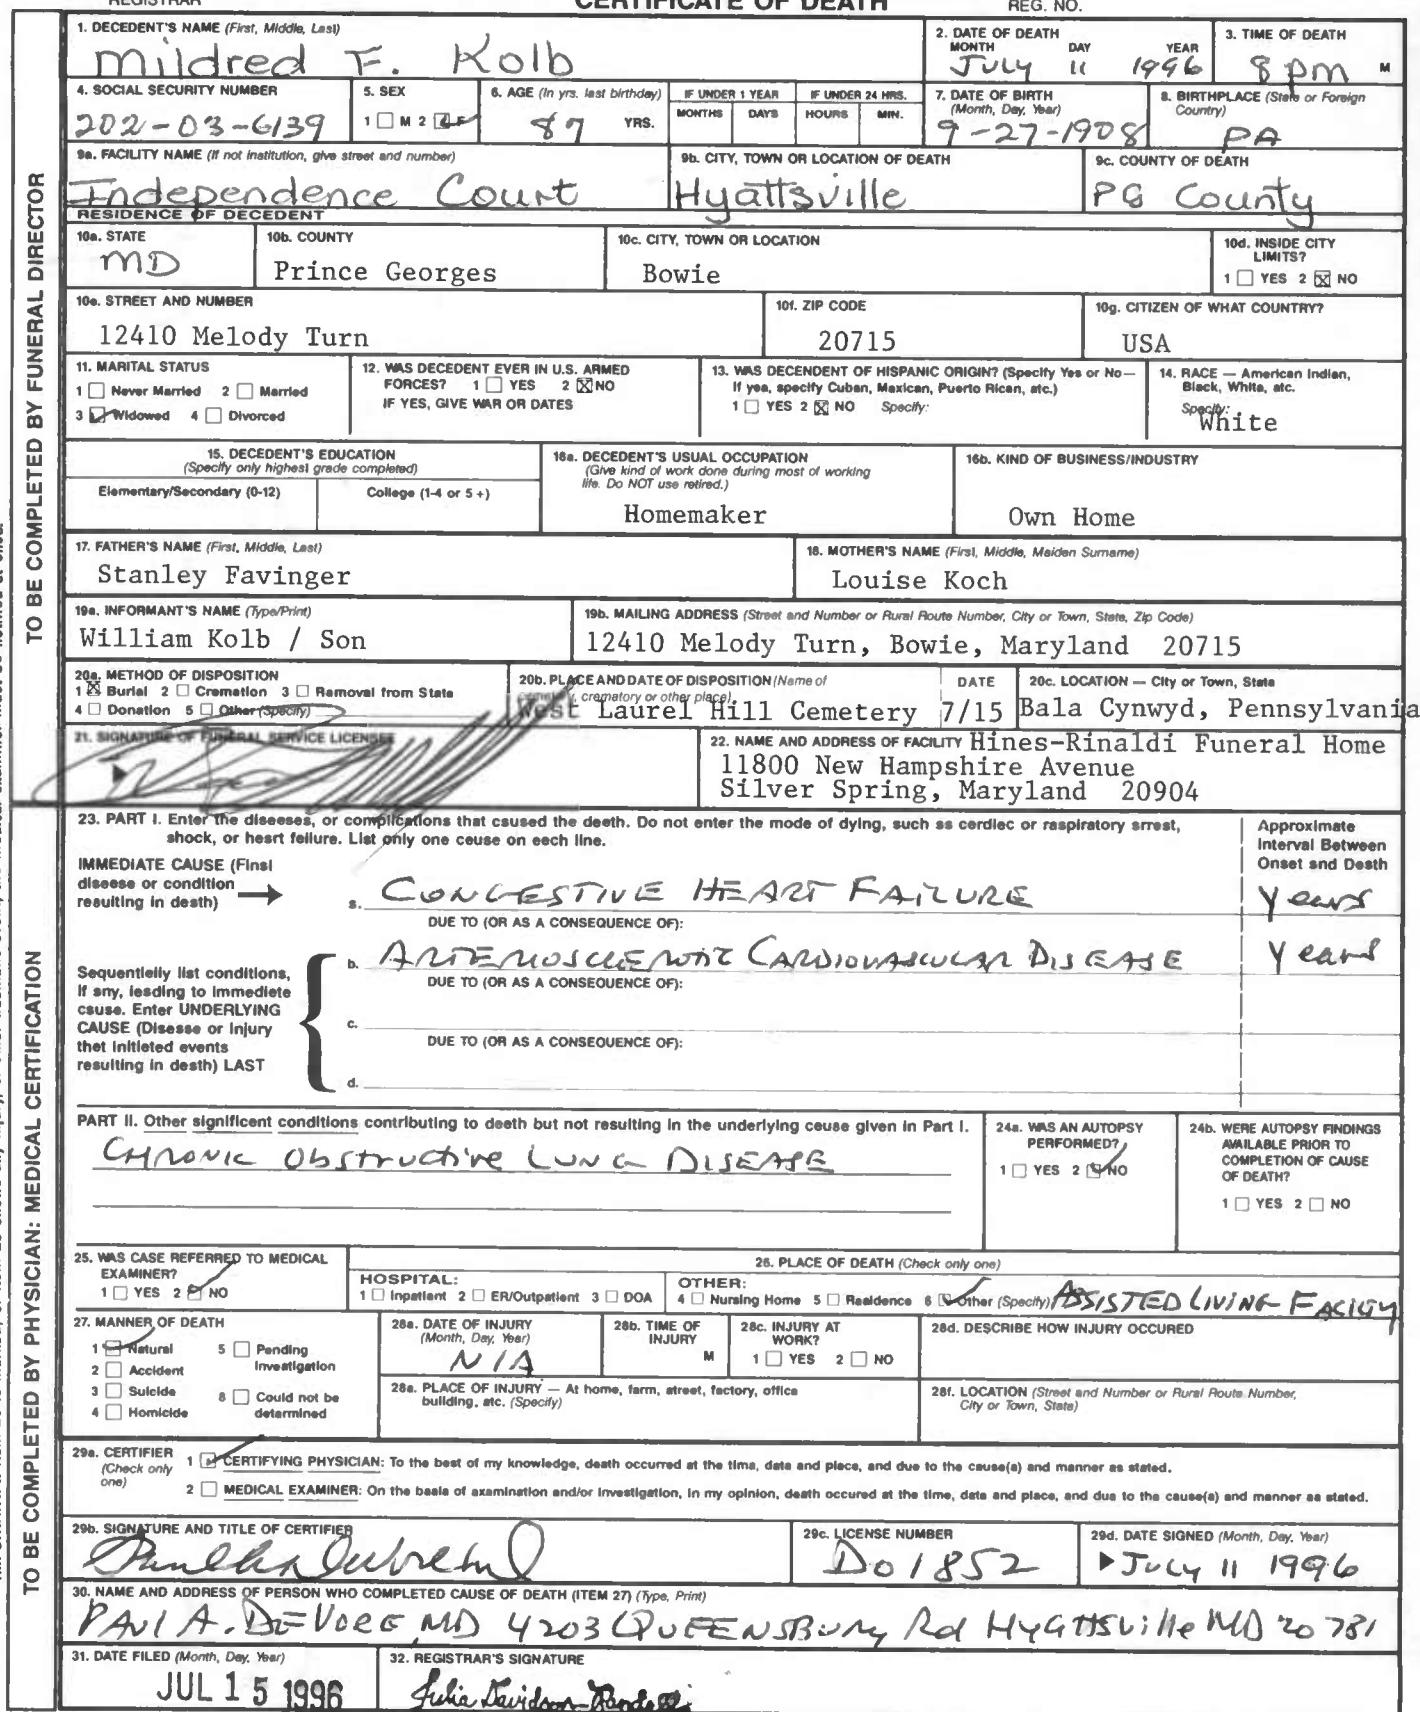 REGISTRAR CERTIFICATE OF DEATH REG. NO.
TO BE COMPLETED BY FUNERAL DIRECTOR
1. DECEDENT'S NAME (First, Middle, Last)
Mildred F. Kolb
2. DATE OF DEATH
MONTH DAY YEAR
JULY 11 1996
3. TIME OF DEATH
8 pm M
4. SOCIAL SECURITY NUMBER
202-03-6139
5. SEX
1 ☐ M 2 ☑ F
6. AGE (In yrs. last birthday)
87 YRS.
IF UNDER 1 YEAR
MONTHS DAYS
IF UNDER 24 HRS.
HOURS MIN.
7. DATE OF BIRTH
(Month, Day, Year)
9-27-1908
8. BIRTHPLACE (State or Foreign
Country)
PA
9a. FACILITY NAME (If not institution, give street and number)
Independence Court
9b. CITY, TOWN OR LOCATION OF DEATH
Hyattsville
9c. COUNTY OF DEATH
PG County
RESIDENCE OF DECEDENT
10a. STATE
MD
10b. COUNTY
Prince Georges
10c. CITY, TOWN OR LOCATION
Bowie
10d. INSIDE CITY
LIMITS?
1 ☐ YES 2 ☒ NO
10e. STREET AND NUMBER
12410 Melody Turn
10f. ZIP CODE
20715
10g. CITIZEN OF WHAT COUNTRY?
USA
11. MARITAL STATUS
1 ☐ Never Married 2 ☐ Married
3 ☑ Widowed 4 ☐ Divorced
12. WAS DECEDENT EVER IN U.S. ARMED
FORCES? 1 ☐ YES 2 ☒ NO
IF YES, GIVE WAR OR DATES
13. WAS DECENDENT OF HISPANIC ORIGIN? (Specify Yes or No—
If yes, specify Cuban, Mexican, Puerto Rican, etc.)
1 ☐ YES 2 ☒ NO Specify:
14. RACE — American Indian,
Black, White, etc.
Specify:
White
15. DECEDENT'S EDUCATION
(Specify only highest grade completed)
Elementary/Secondary (0-12) College (1-4 or 5 +)
16a. DECEDENT'S USUAL OCCUPATION
(Give kind of work done during most of working
life. Do NOT use retired.)
Homemaker
16b. KIND OF BUSINESS/INDUSTRY
Own Home
17. FATHER'S NAME (First, Middle, Last)
Stanley Favinger
18. MOTHER'S NAME (First, Middle, Maiden Surname)
Louise Koch
19a. INFORMANT'S NAME (Type/Print)
William Kolb / Son
19b. MAILING ADDRESS (Street and Number or Rural Route Number, City or Town, State, Zip Code)
12410 Melody Turn, Bowie, Maryland 20715
20a. METHOD OF DISPOSITION
1 ☒ Burial 2 ☐ Cremation 3 ☐ Removal from State
4 ☐ Donation 5 ☐ Other (Specify)
20b. PLACE AND DATE OF DISPOSITION (Name of
cemetery, crematory or other place)
West Laurel Hill Cemetery
DATE
7/15
20c. LOCATION — City or Town, State
Bala Cynwyd, Pennsylvania
21. SIGNATURE OF FUNERAL SERVICE LICENSEE
22. NAME AND ADDRESS OF FACILITY Hines-Rinaldi Funeral Home
11800 New Hampshire Avenue
Silver Spring, Maryland 20904
TO BE COMPLETED BY PHYSICIAN: MEDICAL CERTIFICATION
23. PART I. Enter the diseases, or complications that caused the death. Do not enter the mode of dying, such as cardiac or respiratory arrest,
shock, or heart failure. List only one cause on each line.
Approximate
Interval Between
Onset and Death
IMMEDIATE CAUSE (Final
disease or condition
resulting in death) →
a. CONGESTIVE HEART FAILURE years
DUE TO (OR AS A CONSEQUENCE OF):
b. ARTERIOSCLEROTIC CARDIOVASCULAR DISEASE years
DUE TO (OR AS A CONSEQUENCE OF):
c.
DUE TO (OR AS A CONSEQUENCE OF):
d.
Sequentially list conditions,
if any, leading to immediate
cause. Enter UNDERLYING
CAUSE (Disease or injury
that initiated events
resulting in death) LAST
PART II. Other significant conditions contributing to death but not resulting in the underlying cause given in Part I.
CHRONIC Obstructive LUNG DISEASE
24a. WAS AN AUTOPSY
PERFORMED?
1 ☐ YES 2 ☑ NO
24b. WERE AUTOPSY FINDINGS
AVAILABLE PRIOR TO
COMPLETION OF CAUSE
OF DEATH?
1 ☐ YES 2 ☐ NO
25. WAS CASE REFERRED TO MEDICAL
EXAMINER?
1 ☐ YES 2 ☑ NO
26. PLACE OF DEATH (Check only one)
HOSPITAL:
1 ☐ Inpatient 2 ☐ ER/Outpatient 3 ☐ DOA
OTHER:
4 ☐ Nursing Home 5 ☐ Residence 6 ☑ Other (Specify) ASSISTED LIVING FACILITY
27. MANNER OF DEATH
1 ☑ Natural 5 ☐ Pending
Investigation
2 ☐ Accident
3 ☐ Suicide 8 ☐ Could not be
determined
4 ☐ Homicide
28a. DATE OF INJURY
(Month, Day, Year)
N/A
28b. TIME OF
INJURY
M
28c. INJURY AT
WORK?
1 ☐ YES 2 ☐ NO
28d. DESCRIBE HOW INJURY OCCURED
28e. PLACE OF INJURY — At home, farm, street, factory, office
building, etc. (Specify)
28f. LOCATION (Street and Number or Rural Route Number,
City or Town, State)
29a. CERTIFIER
(Check only
one)
1 ☑ CERTIFYING PHYSICIAN: To the best of my knowledge, death occurred at the time, date and place, and due to the cause(s) and manner as stated.
2 ☐ MEDICAL EXAMINER: On the basis of examination and/or investigation, in my opinion, death occured at the time, date and place, and due to the cause(s) and manner as stated.
29b. SIGNATURE AND TITLE OF CERTIFIER
29c. LICENSE NUMBER
D01852
29d. DATE SIGNED (Month, Day, Year)
JULY 11 1996
30. NAME AND ADDRESS OF PERSON WHO COMPLETED CAUSE OF DEATH (ITEM 27) (Type, Print)
PAUL A. DEVORE, MD 4203 QUEENSBURY Rd HYATTSville MD 20781
31. DATE FILED (Month, Day, Year)
JUL 15 1996
32. REGISTRAR'S SIGNATURE
Julia Davidson-Randall